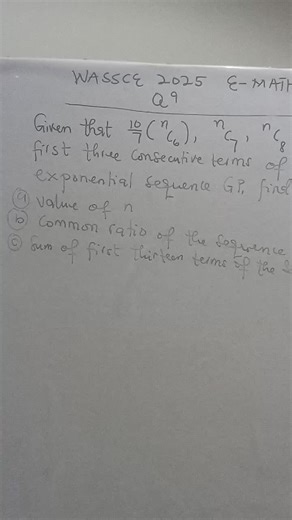 WASSCE 2025 E-MATH
Q9
Given that 10/7 (ⁿC₆), ⁿC₇, ⁿC₈
first three consecutive terms of
exponential sequence GP, find
(a) value of n
(b) Common ratio of the sequence
(c) Sum of first thirteen terms of the